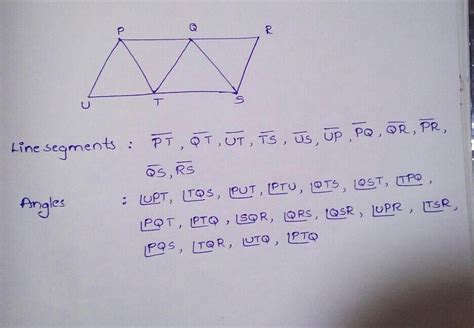 P Q R
U T S
Line segments : P̅T̅, Q̅T̅, U̅T̅, T̅S̅, U̅S̅, U̅P̅, P̅Q̅, Q̅R̅, P̅R̅,
Q̅S̅, R̅S̅
Angles : ∠UPT, ∠TQS, ∠PUT, ∠PTU, ∠QTS, ∠QST, ∠TPQ,
∠PQT, ∠PTQ, ∠SQR, ∠QRS, ∠QSR, ∠UPR, ∠TSR,
∠PQS, ∠TQR, ∠UTQ, ∠PTQ